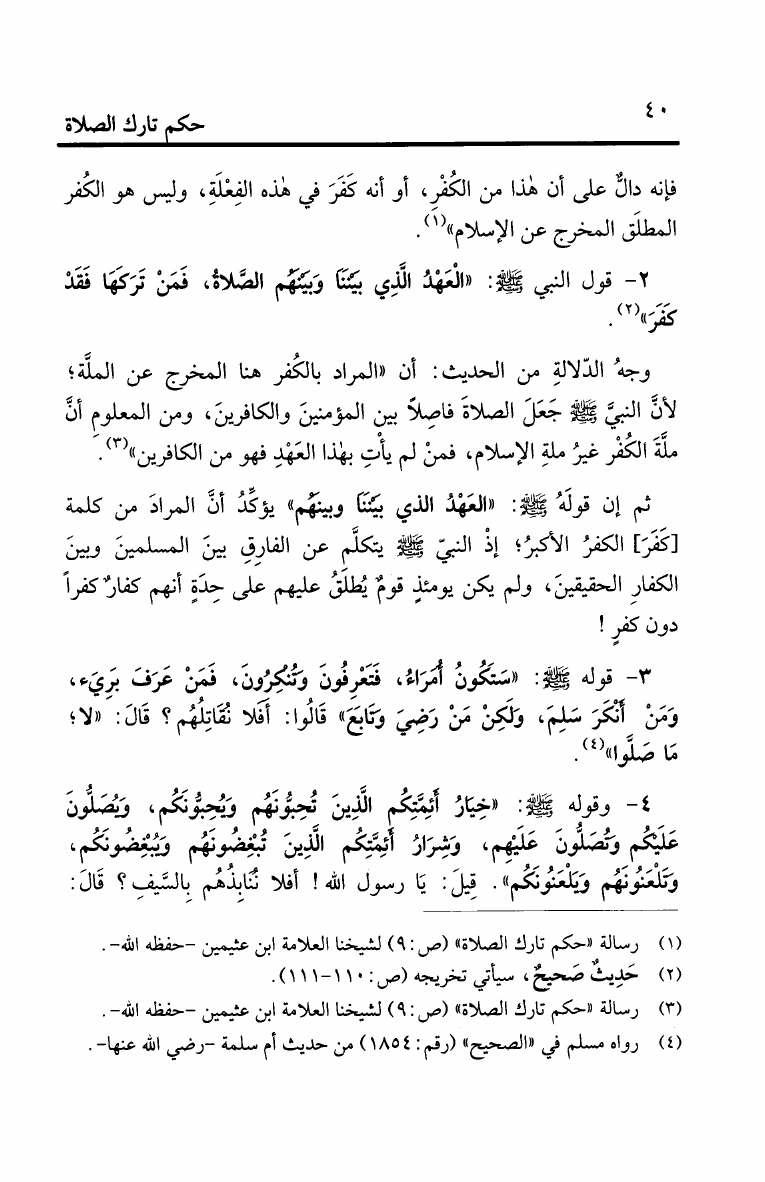 ٤٠
حكم تارك الصلاة
فإنه دالٌّ على أن هٰذا من الكُفْرِ، أو أنه كَفَرَ في هٰذه الفِعْلَةِ، وليس هو الكُفر
المطلَق المخرج عن الإسلام»(١).
٢- قول النبي ﷺ: «الْعَهْدُ الَّذِي بَيْنَنَا وَبَيْنَهُم الصَّلاةُ، فَمَنْ تَرَكَهَا فَقَدْ
كَفَرَ»(٢).
وجهُ الدّلالةِ من الحديث: أن «المراد بالكُفر هنا المخرج عن الملَّة؛
لأنَّ النبيَّ ﷺ جَعَلَ الصلاةَ فاصِلاً بين المؤمنينَ والكافرينَ، ومن المعلومِ أنَّ
ملَّةَ الكُفْر غيرُ ملةِ الإسلام، فمنْ لم يأْتِ بهٰذا العَهْدِ فهو من الكافرين»(٣).
ثم إن قولَهُ ﷺ: «العَهْدُ الذي بَيْنَنَا وبينهُم» يؤكِّدُ أنَّ المرادَ من كلمة
[كَفَرَ] الكفرُ الأكبرُ؛ إذْ النبيّ ﷺ يتكلَّم عن الفارِقِ بينَ المسلمينَ وبينَ
الكفارِ الحقيقينَ، ولم يكن يومئذٍ قومٌ يُطلَقُ عليهم على حِدَةٍ أنهم كفارٌ كفراً
دون كفرٍ !
٣- قوله ﷺ: «سَتكُونُ أُمَرَاءُ، فَتَعْرِفُونَ وَتُنْكِرُونَ، فَمَنْ عَرَفَ بَرِيَء،
وَمَنْ أَنْكَرَ سَلِمَ، وَلَكِنْ مَنْ رَضِيَ وَتَابَعَ» قَالُوا: أَفَلا نُقَاتِلُهُم؟ قَالَ: «لا؛
مَا صَلَّوا»(٤).
٤- وقوله ﷺ: «خِيَارُ أَئِمَّتِكُم الَّذِينَ تُحِبُّونَهُم وَيُحِبُّونَكُم، وَيُصَلُّونَ
عَلَيْكُم وَتُصَلُّونَ عَلَيْهِم، وَشِرَارُ أَئِمَّتِكُم الَّذِينَ تُبْغِضُونَهُم وَيُبْغِضُونَكُم،
وَتَلْعَنُونَهُم وَيَلْعَنُونَكُم». قِيلَ: يَا رسول الله ! أفلا نُنَابِذُهُم بِالسَّيفِ؟ قَالَ:
(١) رسالة «حكم تارك الصلاة» (ص:٩) لشيخنا العلامة ابن عثيمين -حفظه الله-.
(٢) حَدِيثٌ صَحيحٌ، سيأتي تخريجه (ص: ١١٠-١١١).
(٣) رسالة «حكم تارك الصلاة» (ص:٩) لشيخنا العلامة ابن عثيمين -حفظه الله-.
(٤) رواه مسلم في «الصحيح» (رقم: ١٨٥٤) من حديث أم سلمة -رضي الله عنها-.